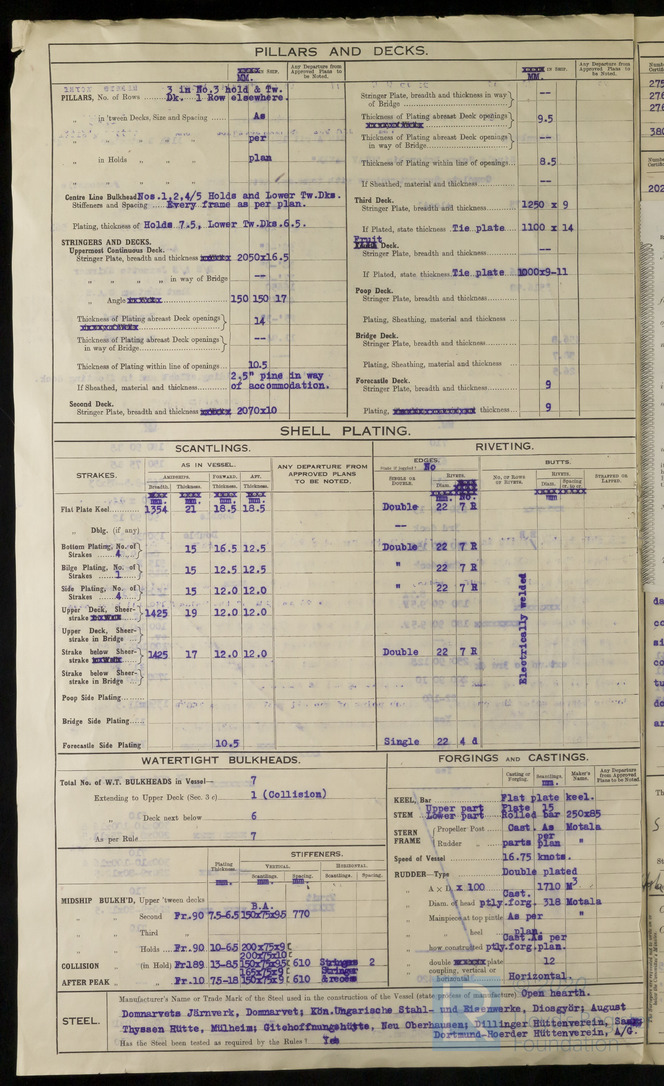 PILLARS AND DECKS.
IN SHIP. Any Departure from Approved Plans to be Noted.
MM.
PILLARS, No. of Rows 3 in No.3 hold & Tw. Dk. 1 Row elsewhere.
„ in 'tween Decks, Size and Spacing As
„ „ „ „ per
„ in Holds „ „ plan
„ „ „ „
Centre Line Bulkhead Nos.1,2,4/5 Holds and Lower Tw.Dks.
Stiffeners and Spacing Every frame as per plan.
Plating, thickness of Holds 7.5, Lower Tw.Dks.6.5.
STRINGERS AND DECKS.
Uppermost Continuous Deck.
Stringer Plate, breadth and thickness 2050x16.5
„ „ „ „ in way of Bridge --
„ Angle 150 150 17
Thickness of Plating abreast Deck openings 14
Thickness of Plating abreast Deck openings in way of Bridge --
Thickness of Plating within line of openings 10.5
If Sheathed, material and thickness 2,5" pine in way of accommodation.
Second Deck.
Stringer Plate, breadth and thickness 2070x10
IN SHIP. Any Departure from Approved Plans to be Noted.
MM.
Stringer Plate, breadth and thickness in way of Bridge --
Thickness of Plating abreast Deck openings 9.5
Thickness of Plating abreast Deck openings in way of Bridge --
Thickness of Plating within line of openings 8.5
If Sheathed, material and thickness --
Third Deck.
Stringer Plate, breadth and thickness 1250 x 9
If Plated, state thickness Tie plate 1100 x 14
Fruit Deck.
Stringer Plate, breadth and thickness --
If Plated, state thickness Tie plate 1000x9-11
Poop Deck.
Stringer Plate, breadth and thickness
Plating, Sheathing, material and thickness
Bridge Deck.
Stringer Plate, breadth and thickness
Plating, Sheathing, material and thickness
Forecastle Deck.
Stringer Plate, breadth and thickness 9
Plating, thickness 9
SHELL PLATING.
SCANTLINGS. RIVETING.
STRAKES. AS IN VESSEL. ANY DEPARTURE FROM APPROVED PLANS TO BE NOTED. EDGES. BUTTS.
AMIDSHIPS. FORWARD. AFT. No SINGLE OR DOUBLE. RIVETS. No. OF ROWS OF RIVETS. RIVETS. STRAPPED OR LAPPED.
Breadth. Thickness. Thickness. Thickness. Diam. Diam. Spacing cr. to cr.
mm. mm. mm. mm. mm.
Flat Plate Keel 1354 21 18.5 18.5 Double 22 7 R
„ Dblg. (if any) --
Bottom Plating, No. of Strakes 4 15 16.5 12.5 Double 22 7 R
Bilge Plating, No. of Strakes 1 15 12.5 12.5 " 22 7 R
Side Plating, No. of Strakes 4 15 12.0 12.0 " 22 7 R
Upper Deck, Sheer-strake 1425 19 12.0 12.0
Upper Deck, Sheer-strake in Bridge
Strake below Sheer-strake 1425 17 12.0 12.0 Double 22 7 R
Strake below Sheer-strake in Bridge
Poop Side Plating
Bridge Side Plating
Forecastle Side Plating 10.5 Single 22 4 d
Electrically welded
WATERTIGHT BULKHEADS.
Total No. of W.T. BULKHEADS in Vessel— 7
Extending to Upper Deck (Sec. 3 c) 1 (Collision)
„ Deck next below 6
As per Rule 7
Plating Thickness. STIFFENERS.
VERTICAL. HORIZONTAL.
Scantlings. Spacing. Scantlings. Spacing.
MIDSHIP BULKH'D, Upper 'tween decks
B.A.
„ „ Second „ Fr.90 7.5-6.5 150x75x95 770
„ „ Third „
„ „ Holds Fr.90 10-65 200x75x9
200x75x10
COLLISION „ (in Hold) Fr189 13-85 150x75x95 610 Stringer 2
165x75x9 Stringer
AFTER PEAK „ „ Fr.10 75-18 150x75x9 610 & recess
FORGINGS AND CASTINGS.
Casting or Forging. Scantlings. Maker's Name. Any Departure from Approved Plans to be Noted.
KEEL, Bar Flat plate keel.
STEM Upper part Plate 15
Lower part Rolled bar 250x85
STERN FRAME Propeller Post Cast. As Motala
per
Rudder „ parts plan "
Speed of Vessel 16.75 knots.
RUDDER—Type Double plated
„ A x D x 100 1710 M3
„ Diam. of head Cast. ptly.forg. 318 Motala
„ Mainpiece at top pintle As per "
„ „ heel plan.
„ how constructed Cast. As per ptly.forg.plan.
„ double plate 12
„ coupling, vertical or horizontal Horizontal.
STEEL. Manufacturer's Name or Trade Mark of the Steel used in the construction of the Vessel (state process of manufacture) Open hearth.
Domnarvets Järnverk, Domnarvet; Kön.Ungarische Stahl- und Eisenwerke, Diosgyör; August
Thyssen Hütte, Mülheim; Gutehoffnungshütte, Neu Oberhausen; Dillinger Hüttenverein,
Dortmund-Hoerder Hüttenverein, A/G.
Has the Steel been tested as required by the Rules? Yes